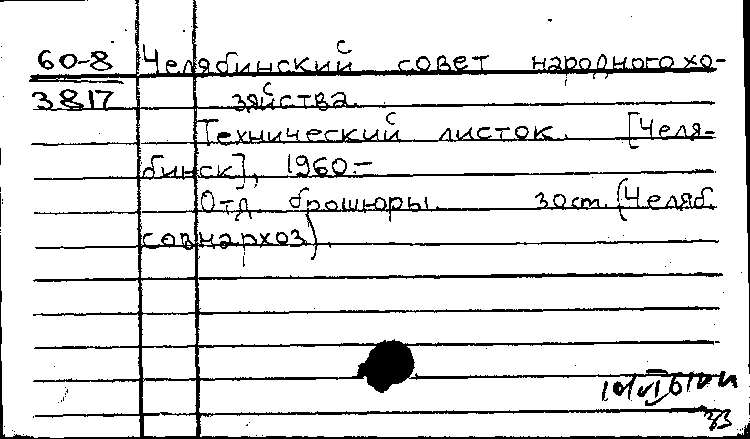 60-8 Челябинский совет народного хо-
3817 зяйства.
Технический листок. [Челя-
бинск], 1960.–
Отд. брошюры. заст. (Челяб.
совнархоз).